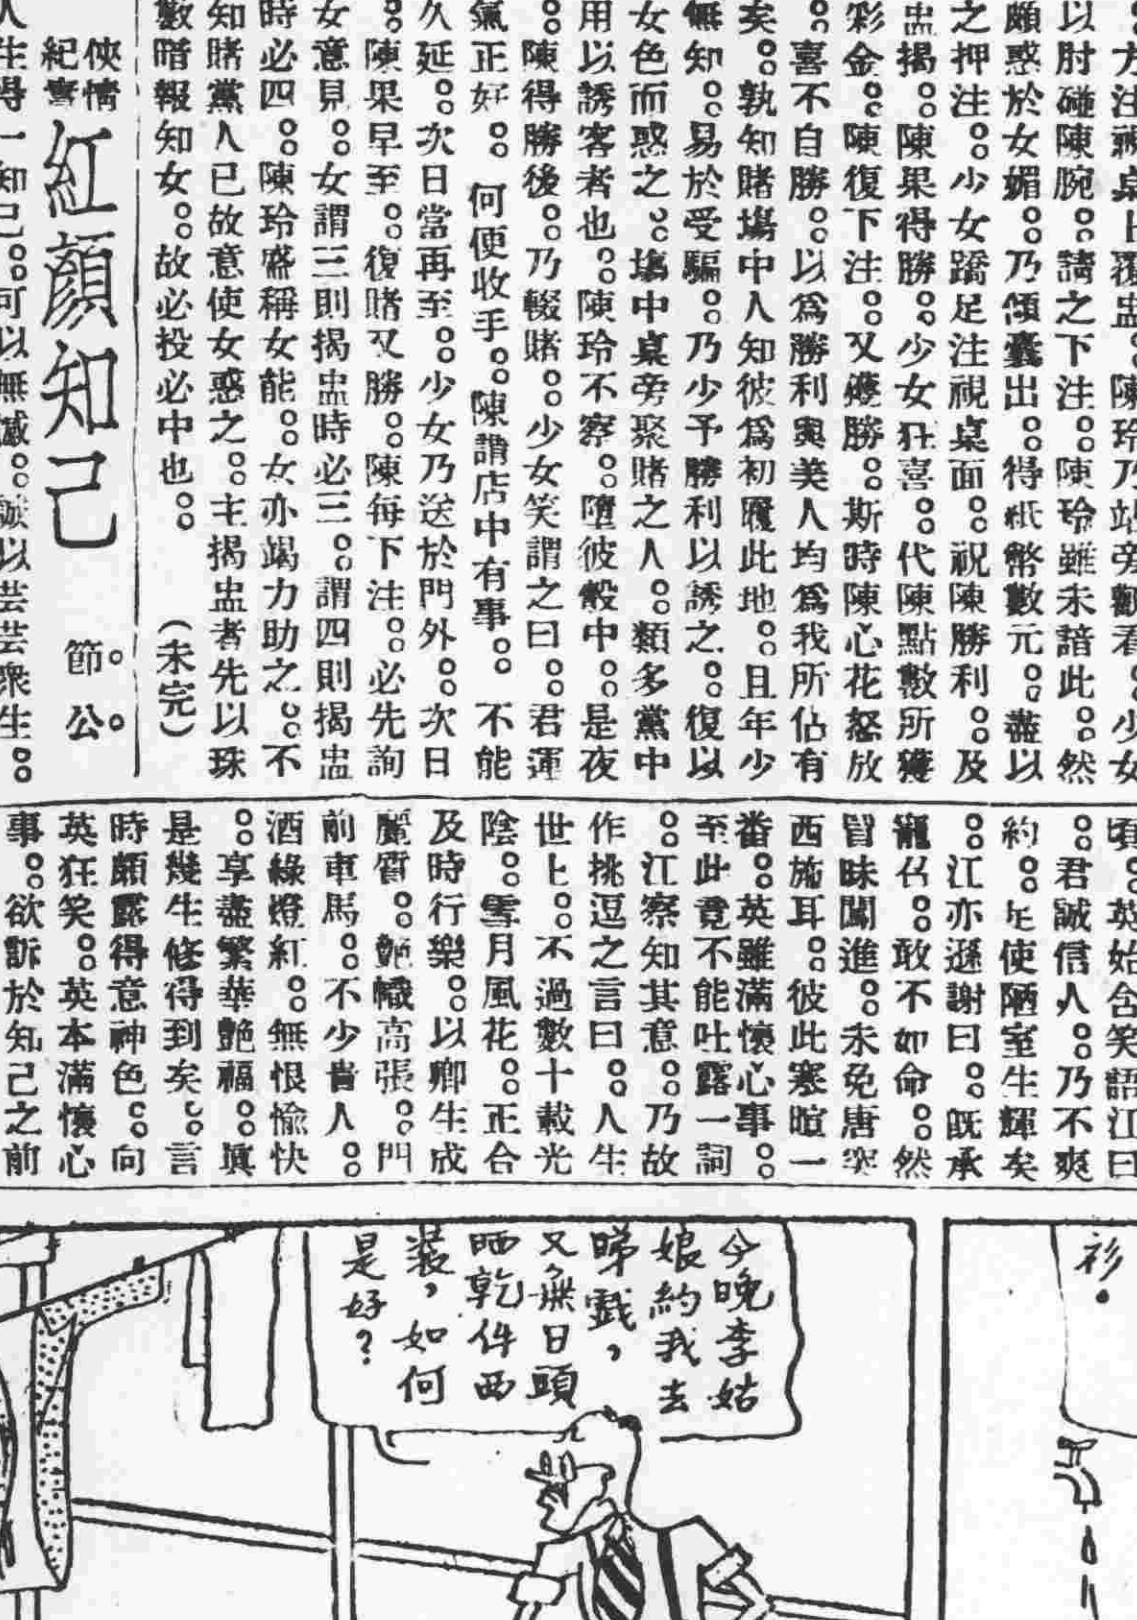 。方注視桌上覆盅。陳玲乃站旁觀看。少女
以肘碰陳腕。請之下注。陳玲雖未諳此。然
頗惑於女媚。乃傾囊出。得紙幣數元。盡以
之押注。少女蹻足注視桌面。祝陳勝利。及
盅揭。陳果得勝。少女狂喜。代陳點數所獲
彩金。陳復下注。又獲勝。斯時陳心花怒放
。喜不自勝。以爲勝利與美人均爲我所佔有
矣。孰知賭塲中人知彼爲初履此地。且年少
無知。易於受騙。乃少予勝利以誘之。復以
女色而惑之。塲中桌旁聚賭之人。類多黨中
用以誘客者也。陳玲不察。墮彼彀中。是夜
。陳得勝後。乃輟賭。少女笑謂之曰。君運
氣正好。何便收手。陳謂店中有事。不能
久延。次日當再至。少女乃送於門外。次日
。陳果早至。復賭又勝。陳每下注。必先詢
女意見。女謂三則揭盅時必三。謂四則揭盅
時必四。陳玲盛稱女能。女亦竭力助之。不
知賭黨人已故意使女惑之。主揭盅者先以珠
數暗報知女。故必投必中也。（未完）
俠情
紀實
紅顏知己
節公
人生得一知己。可以無憾。誠以芸芸衆生。
頃。英始含笑語江曰
。君誠信人。乃不爽
約。足使陋室生輝矣
。江亦遜謝曰。既承
寵召。敢不如命。然
冒昧闖進。未免唐突
西施耳。彼此寒暄一
番。英雖滿懷心事。
至此竟不能吐露一詞
。江察知其意。乃故
作挑逗之言曰。人生
世上。不過數十載光
陰。雪月風花。正合
及時行樂。以卿生成
麗質。艶幟高張。門
前車馬。不少貴人。
酒綠燈紅。無恨愉快
。享盡繁華艶福。眞
是幾生修得到矣。言
時頗露得意神色。向
英狂笑。英本滿懷心
事。欲訴於知己之前
衫.
今晚李姑
娘約我去
睇戲，
又無日頭
晒乾件西
裝，如何
是好？